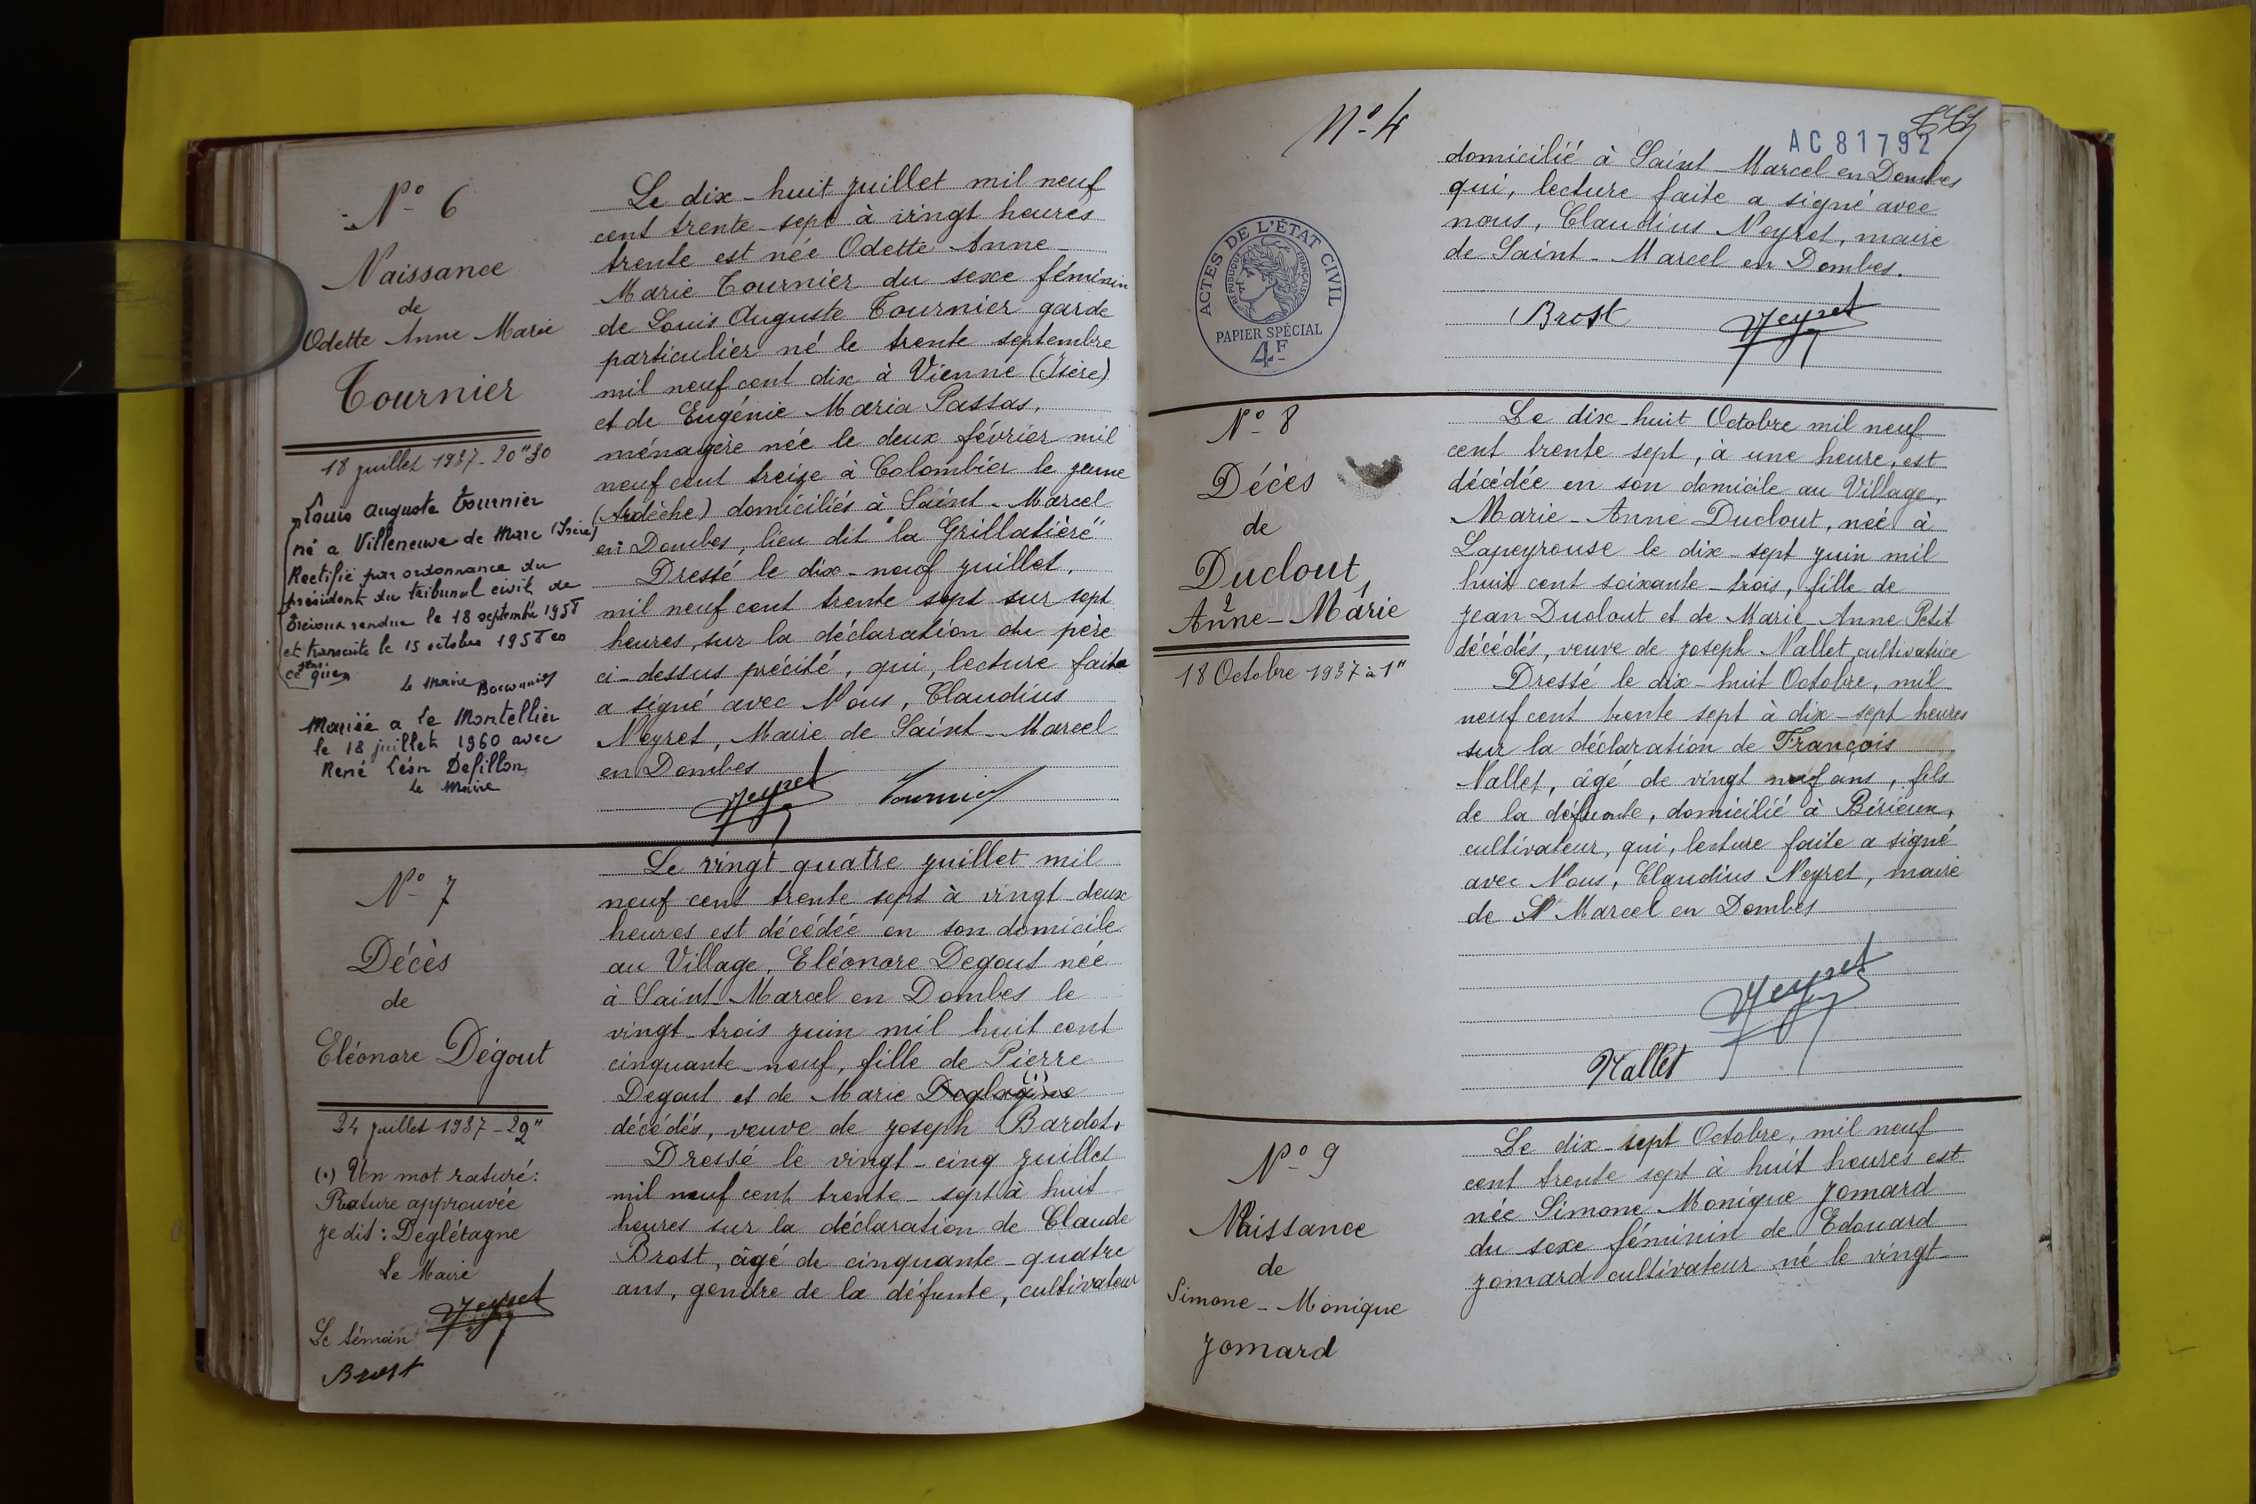 N° 6
Naissance
de
Odette Anne Marie
Tournier
18 juillet 1937 - 20"30
Louis Auguste Tournier
né a Villeneuve de Marc (Isère)
Rectifié par ordonnance du
président du tribunal civil de
Trévoux rendue le 18 septembre
et transcrite le 15 octobre
Le Maire
Mariée a Le Montellier
le 18 juillet 1960 avec
René Léon Defillon
Le Maire
Le dix-huit juillet mil neuf
cent trente-sept à vingt heures
trente est née Odette Anne
Marie Tournier du sexe féminin
de Louis Auguste Tournier garde
particulier né le trente septembre
mil neuf cent dix à Vienne (Isère)
et de Eugénie Maria Passas,
ménagère née le deux février mil
neuf cent treize à Colombier le jeune
(Ardèche) domiciliés à Saint-Marcel
en Dombes, lieu dit "la Grillatière"
Dressé le dix-neuf juillet,
mil neuf cent trente sept sur sept
heures, sur la déclaration du père
ci-dessus précité, qui, lecture faite
a signé avec Nous, Claudius
Neyret, Maire de Saint-Marcel
en Dombes
Neyret Tournier
N° 7
Décès
de
Eléonore Dégout
24 juillet 1937 - 22"
(1) Un mot raturé:
Rature approuvée
je dit: Deglétagne
Le Maire
Neyret
Le témoin
Brost
Le vingt quatre juillet mil
neuf cent trente sept à vingt-deux
heures est décédée en son domicile
au Village, Eléonore Degout née
à Saint-Marcel en Dombes le
vingt-trois juin mil huit cent
cinquante-neuf, fille de Pierre
Degout et de Marie (1)
décédés, veuve de Joseph Bardot.
Dressé le vingt-cinq juillet
mil neuf cent trente-sept à huit
heures sur la déclaration de Claude
Brost, âgé de cinquante-quatre
ans, gendre de la défunte, cultivateur
N° 4
AC 81792
ACTES DE L'ÉTAT CIVIL
RÉPUBLIQUE FRANÇAISE
PAPIER SPÉCIAL
4F
domicilié à Saint-Marcel en Dombes
qui, lecture faite a signé avec
nous, Claudius Neyret, maire
de Saint-Marcel en Dombes.
Brost Neyret
N° 8
Décès
de
Duclout
2 1
Anne-Marie
18 Octobre 1937 à 1"
Le dix-huit Octobre mil neuf
cent trente sept, à une heure, est
décédée en son domicile au Village,
Marie-Anne Duclout, née à
Lapeyrouse le dix-sept juin mil
huit cent soixante-trois, fille de
Jean Duclout et de Marie-Anne Petit
décédés, veuve de Joseph Nallet cultivatrice
Dressé le dix-huit Octobre, mil
neuf cent trente sept à dix-sept heures
sur la déclaration de François
Nallet, âgé de vingt neuf ans, fils
de la défunte, domicilié à Birieux,
cultivateur, qui, lecture faite a signé
avec Nous, Claudius Neyret, maire
de St Marcel en Dombes
Neyret
Nallet
N° 9
Naissance
de
Simone-Monique
Jomard
Le dix-sept Octobre, mil neuf
cent trente sept à huit heures est
née Simone Monique Jomard
du sexe féminin de Edouard
Jomard cultivateur né le vingt-